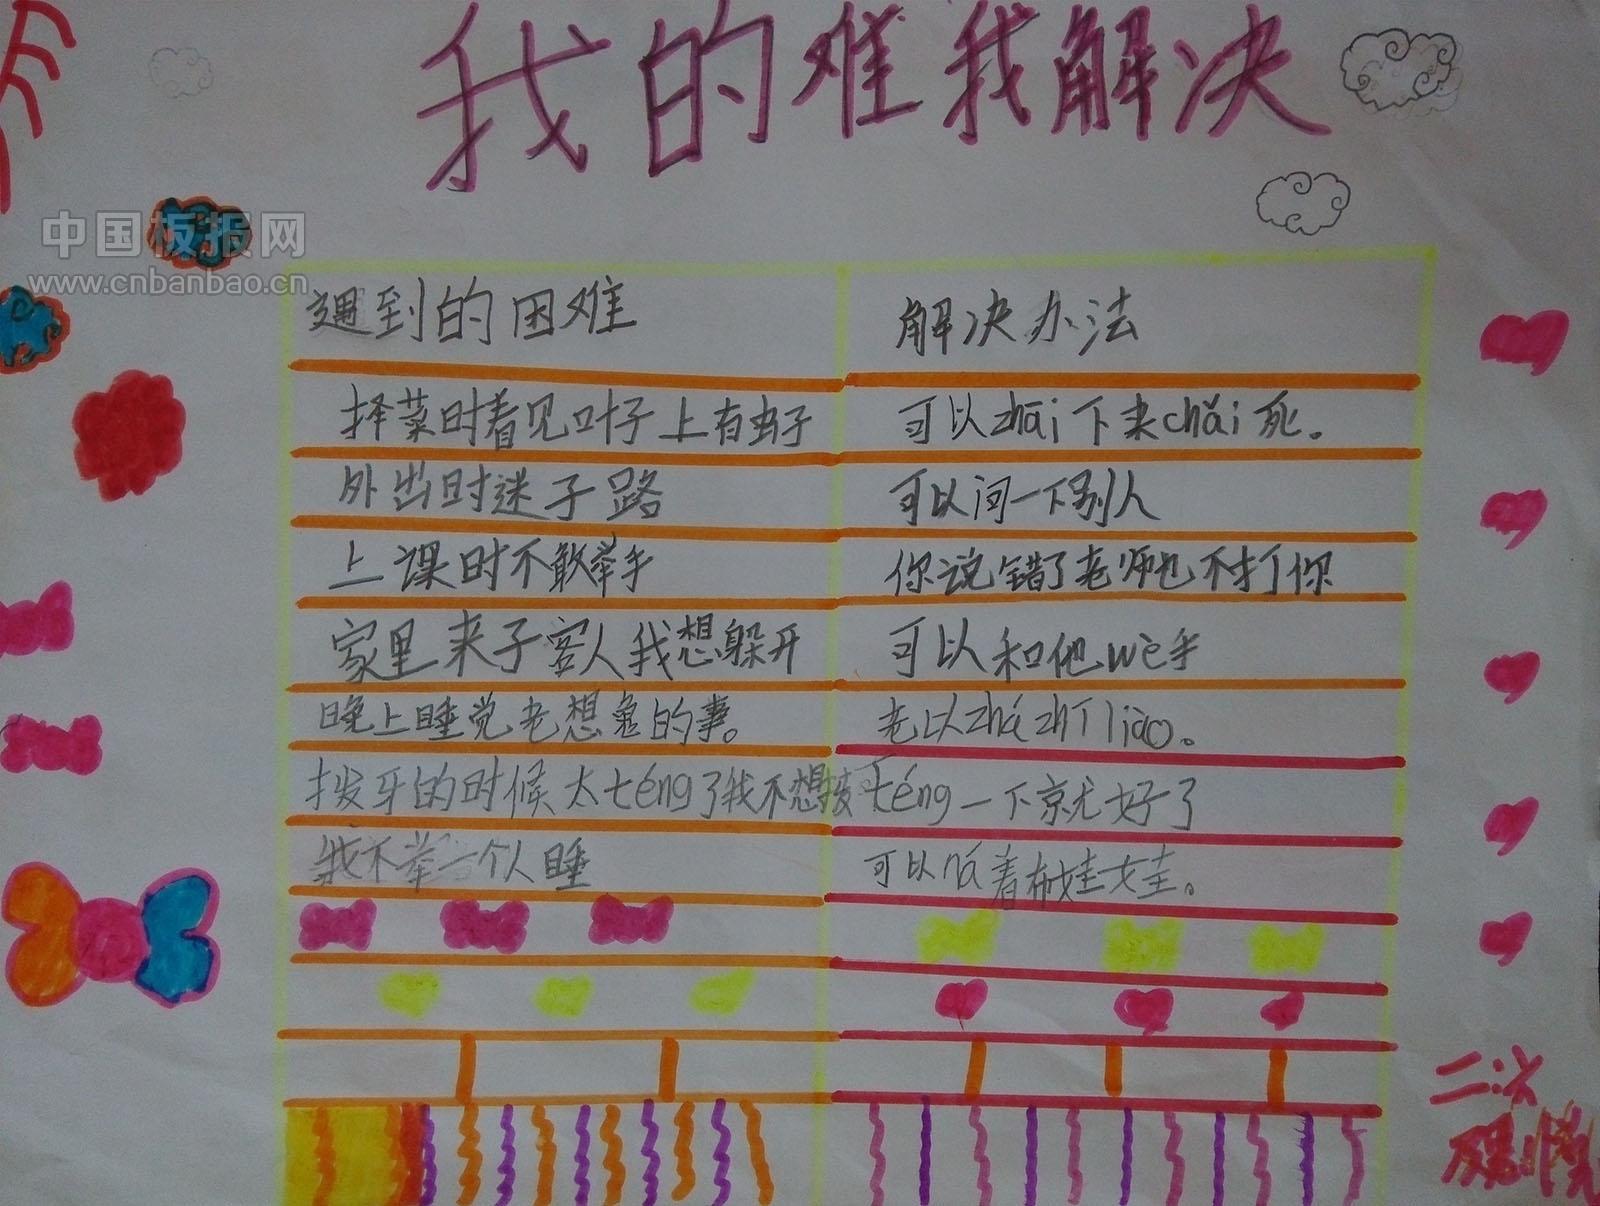 我的难我解决
中国板报网
www.cnbanbao.cn
遇到的困难 解决办法
择菜时看见叶子上有虫子 可以zhāi下来chǎi死。
外出时迷子路 可以问一下别人
上课时不敢举手 你说错了老师也不打你
家里来子客人我想躲开 可以和他wò手
晚上睡觉老想鬼的事。 老以zhá zhī liào。
拔牙的时候太téng了我不想拔 téng一下就好了
我不举一个人睡 可以ná着布娃娃。
二:六